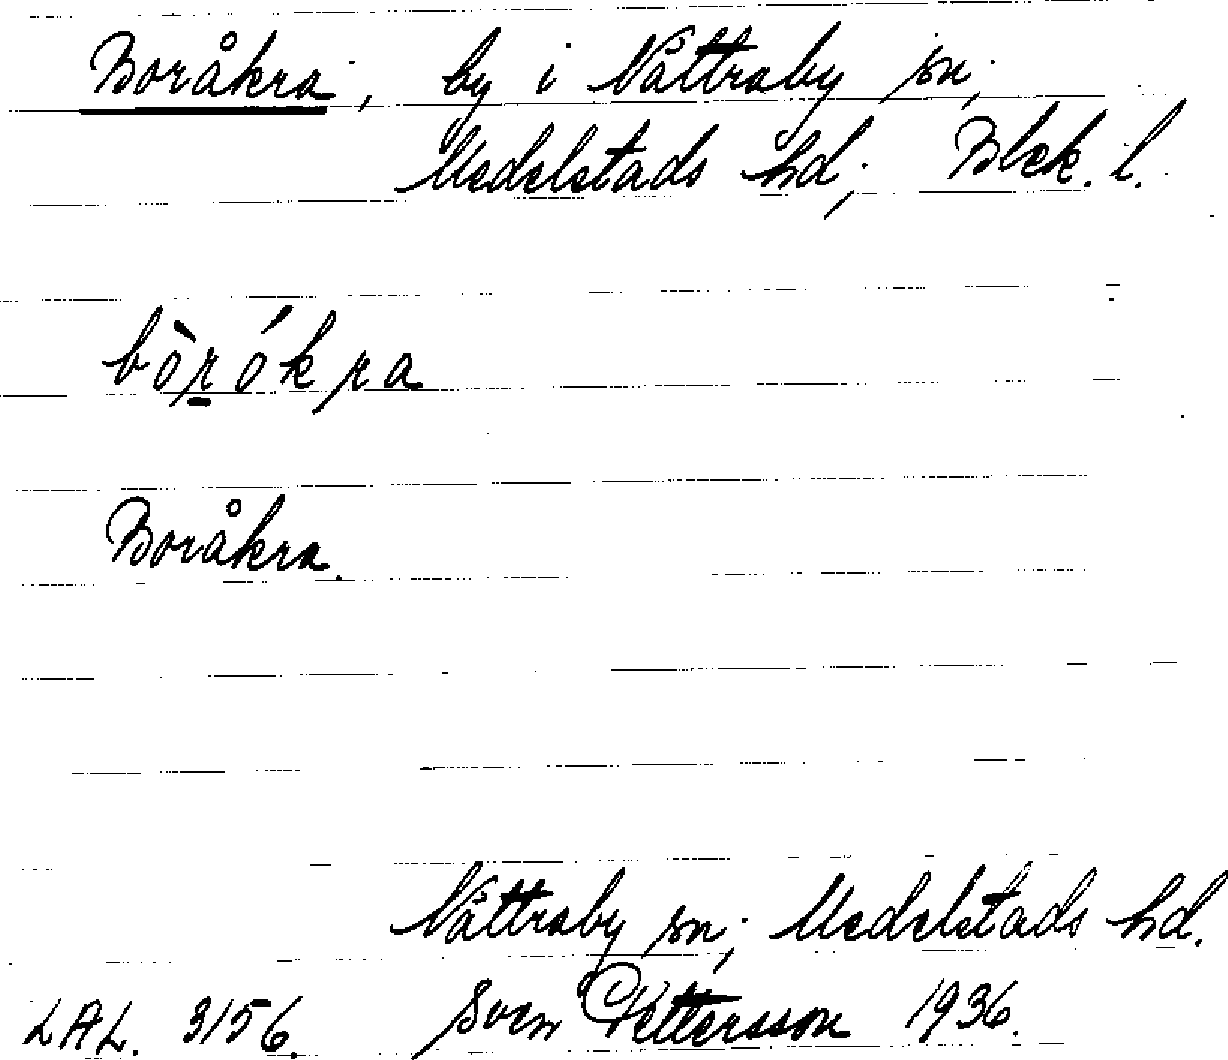 Boråkra, by i Nättraby sn;
Medelstads hd; Blek. l.
bòr̲ókra
Boråkra.
Nättraby sn; Medelstads hd.
LAL. 3156. Sven Pettersson 1936.